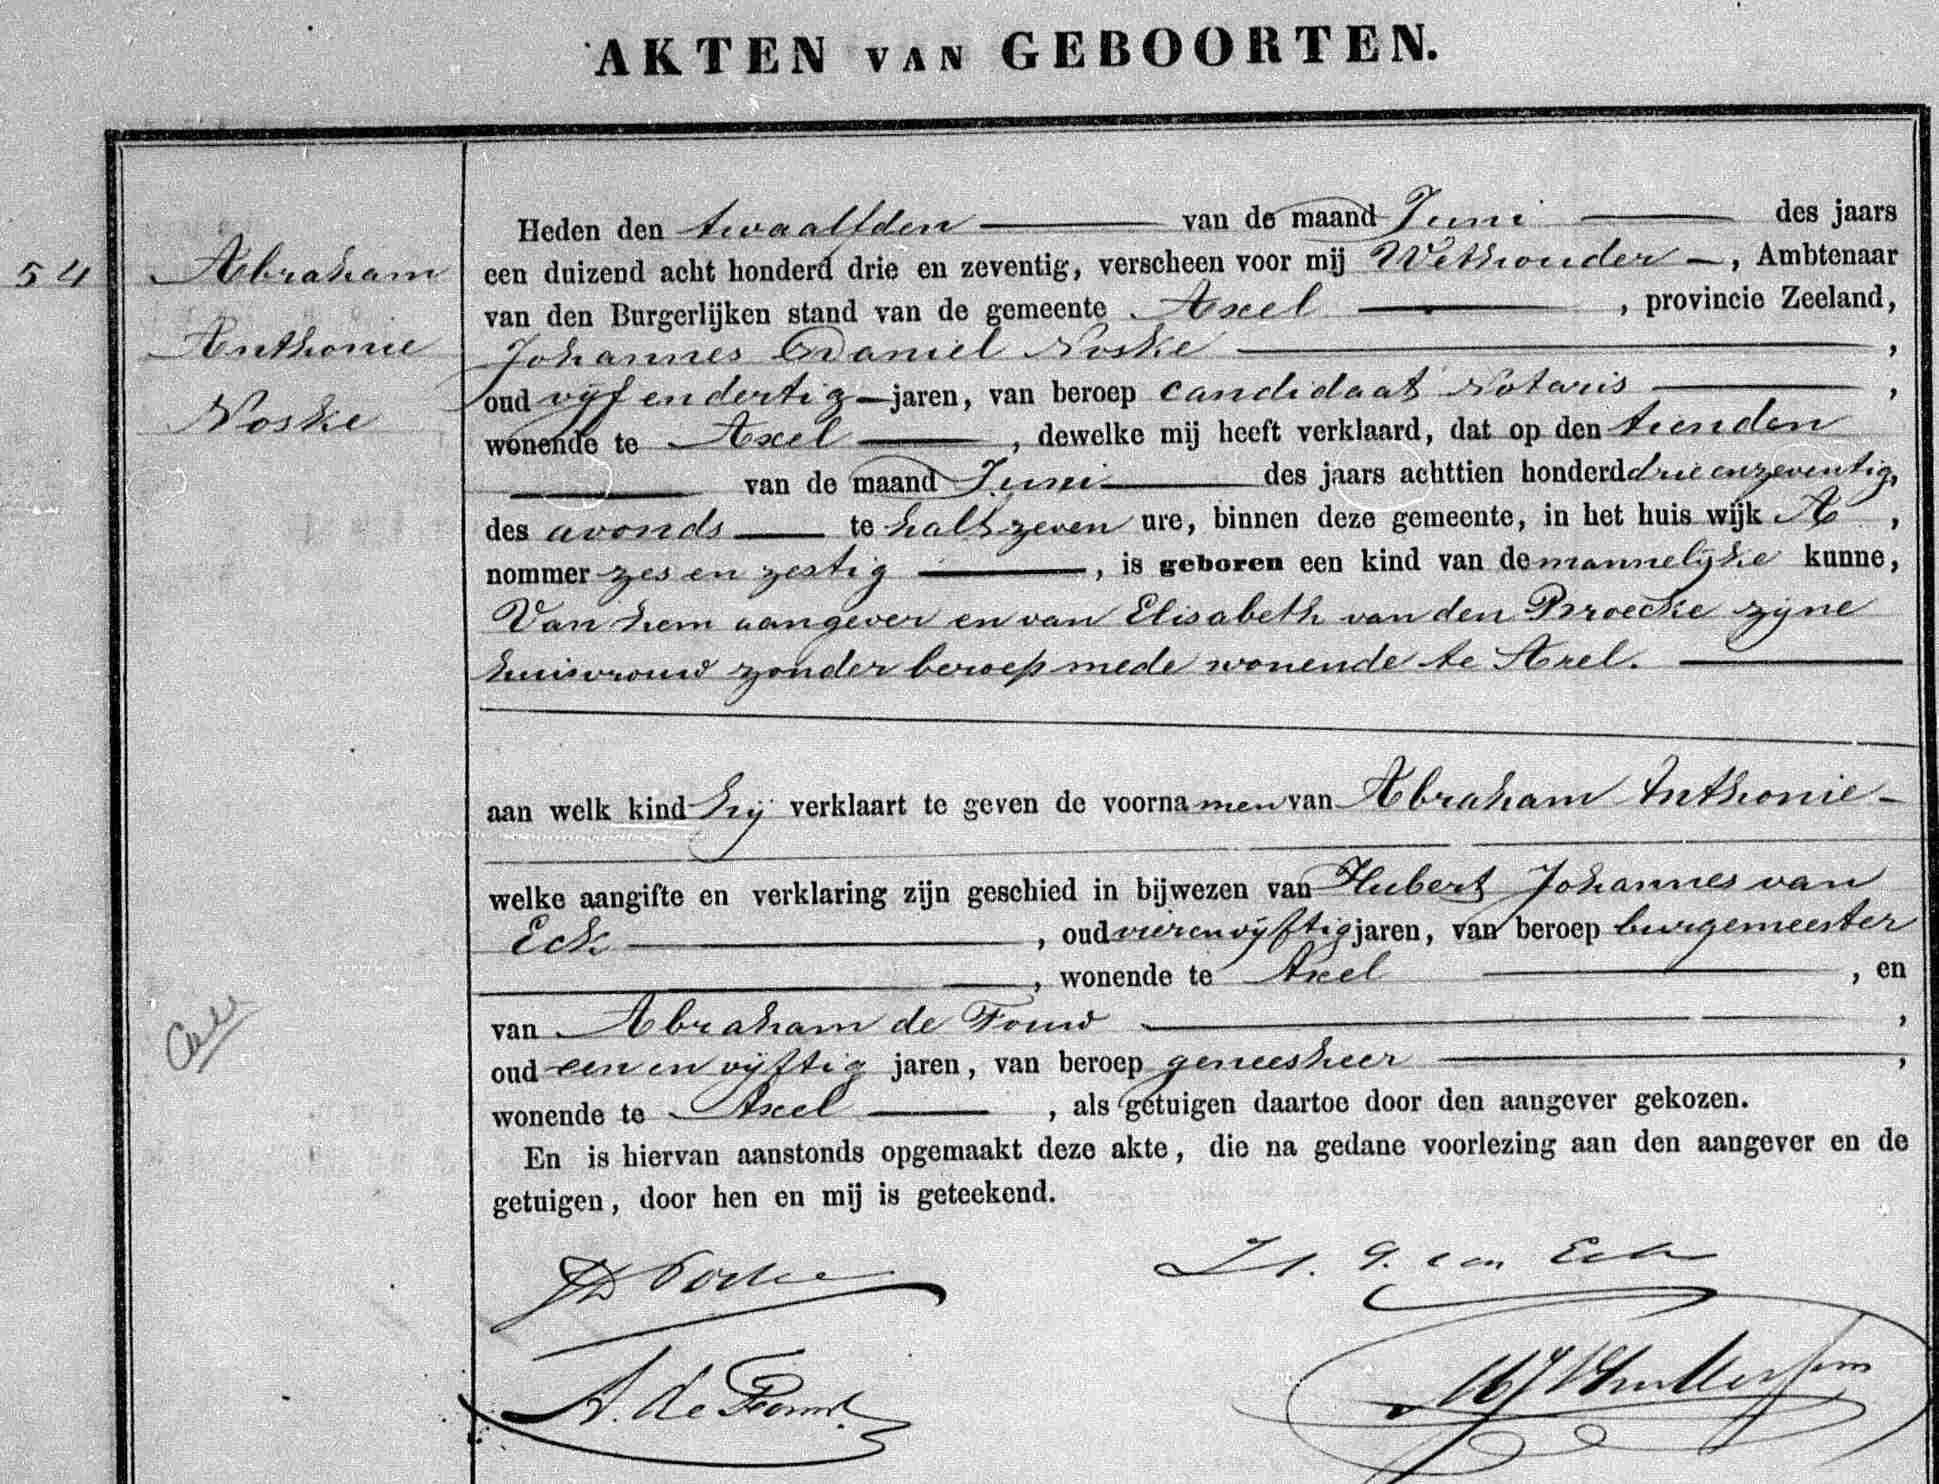 AKTEN VAN GEBOORTEN.
54
Abraham
Anthonie
Noske
Heden den twaalfden van de maand Juni des jaars
een duizend acht honderd drie en zeventig, verscheen voor mij Wethouder, Ambtenaar
van den Burgerlijken stand van de gemeente Axel, provincie Zeeland,
Johannes Daniel Noske,
oud vijf en dertig jaren, van beroep candidaat Notaris,
wonende te Axel, dewelke mij heeft verklaard, dat op den tienden
van de maand Juni des jaars achttien honderd drie en zeventig,
des avonds te half zeven ure, binnen deze gemeente, in het huis wijk A,
nommer zes en zestig, is geboren een kind van de mannelijke kunne,
Van hem aangever en van Elisabeth van den Broecke zijne
huisvrouw zonder beroep mede wonende te Axel.
aan welk kind hij verklaart te geven de voornamen van Abraham Anthonie
welke aangifte en verklaring zijn geschied in bijwezen van Hubert Johannes van
Eck, oud vier en vijftig jaren, van beroep burgemeester
, wonende te Axel, en
van Abraham de Fouw,
oud een en vijftig jaren, van beroep geneesheer,
wonende te Axel, als getuigen daartoe door den aangever gekozen.
En is hiervan aanstonds opgemaakt deze akte, die na gedane voorlezing aan den aangever en de
getuigen, door hen en mij is geteekend.
JD Noske
H. J. van Eck
A. de Fouw